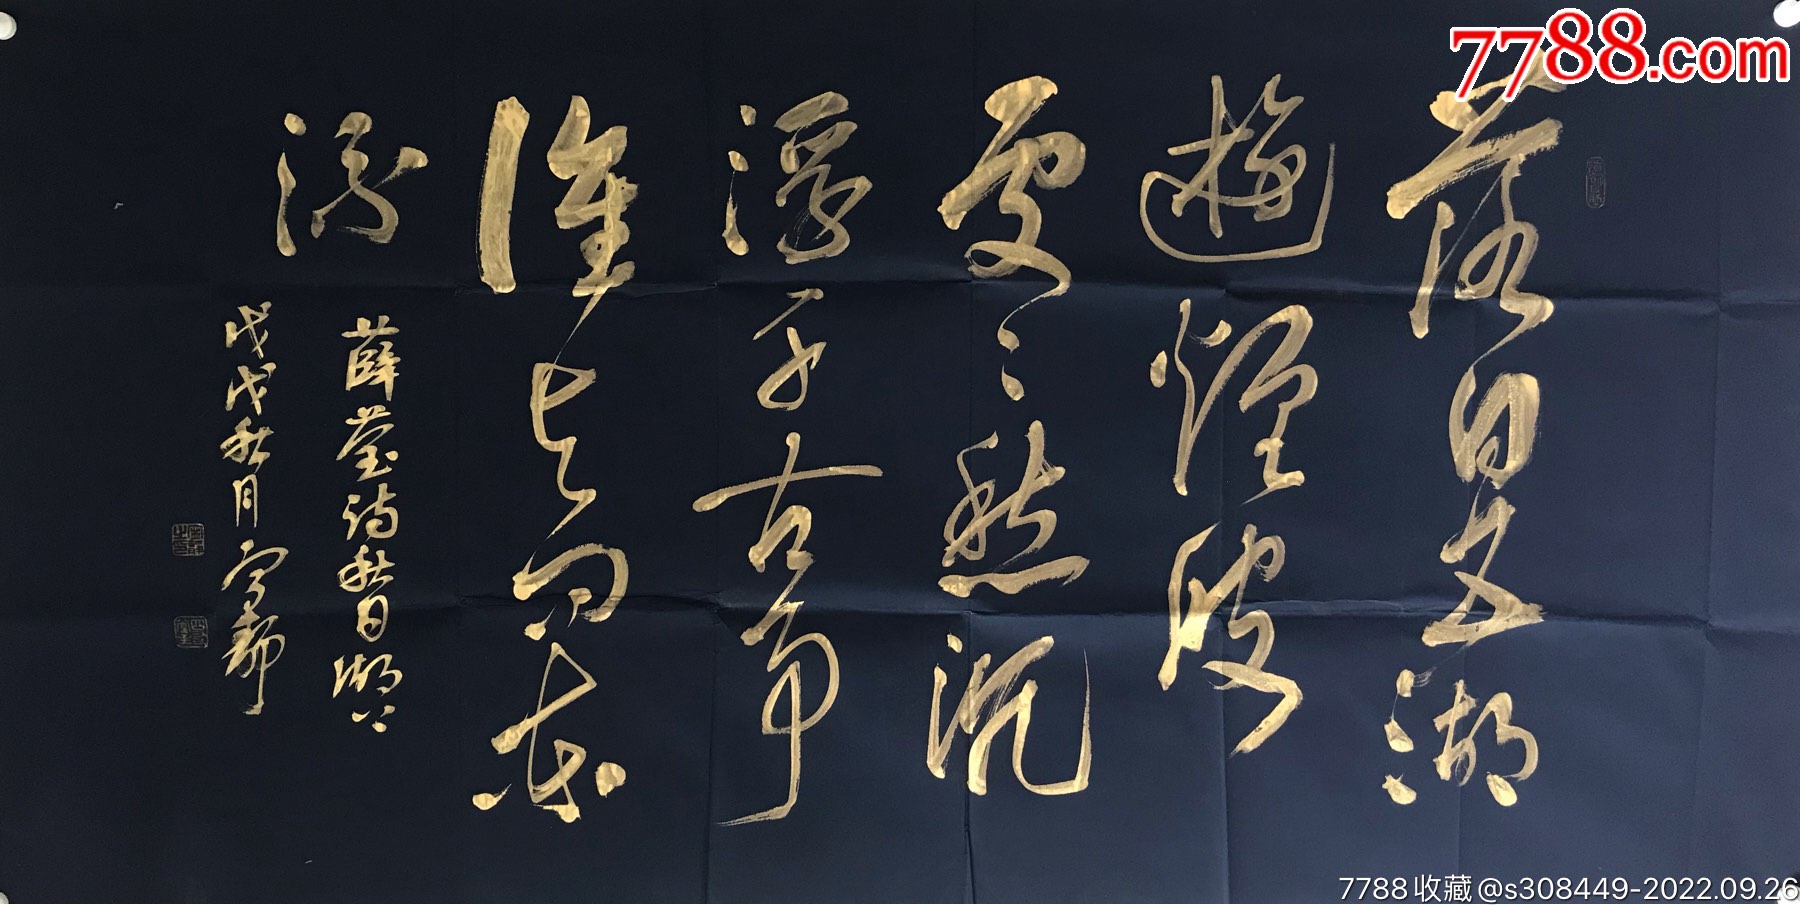 7788.com
落日五湖
遊煙波
處〻愁沉
浮千古事
誰与问东
流
薛莹诗秋日湖上
戊戌秋月
7788收藏@s308449-2022.09.26